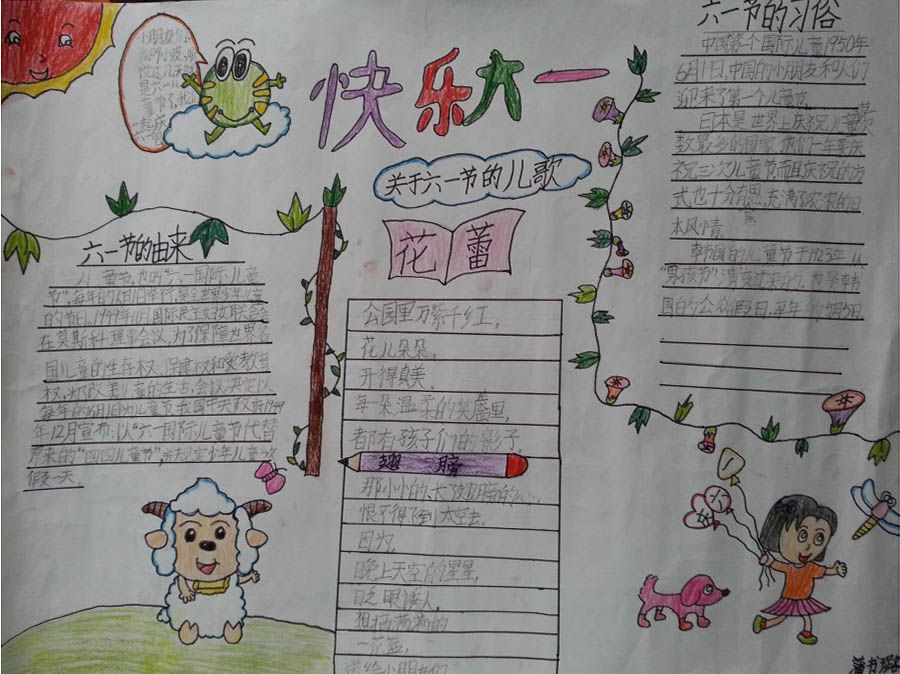 小朋友们
是六一儿
童节了,我
快乐六一
关于六一节的儿歌
花蕾
六一节的由来
儿童节,也叫"六一国际儿童
节",每年的6月1日举行,是全世界少年儿童
的节日。1949年11月,国际民主妇女联合会
在莫斯科理事会议,为了保障世界各
国儿童的生存权、保健权和受教育
权,为了改善儿童的生活,会议决定以
每年的6月1日为儿童节。我国中央政府1949
年12月宣布:以"六一国际儿童节代替
原来的"四四儿童节",并规定少年儿童放
假一天
公园里万紫千红,
花儿朵朵,
开得真美。
每一朵温柔的笑靥里,
都有孩子们的影子。
翅膀
那小小的、
恨不得飞到太空去。
因为,
晚上天空的星星,
眨眼诱人,
想摘满满的
一花篮,
送给小朋友们
六一节的习俗
中国第一个国际儿童1950年
6月1日,中国的小朋友和人们
迎来了第一个儿童节。
日本是世界上庆祝儿童节
次数最多的国家,他们一年要庆
祝三次儿童节,而且庆祝的方
式也十分有意思,充满了浓浓的日
本风情
韩国的儿童节于1923年,从
"男孩节"演变过来的。也是韩
国的公众假日,每年的5月5日
六
一
蒲书璐